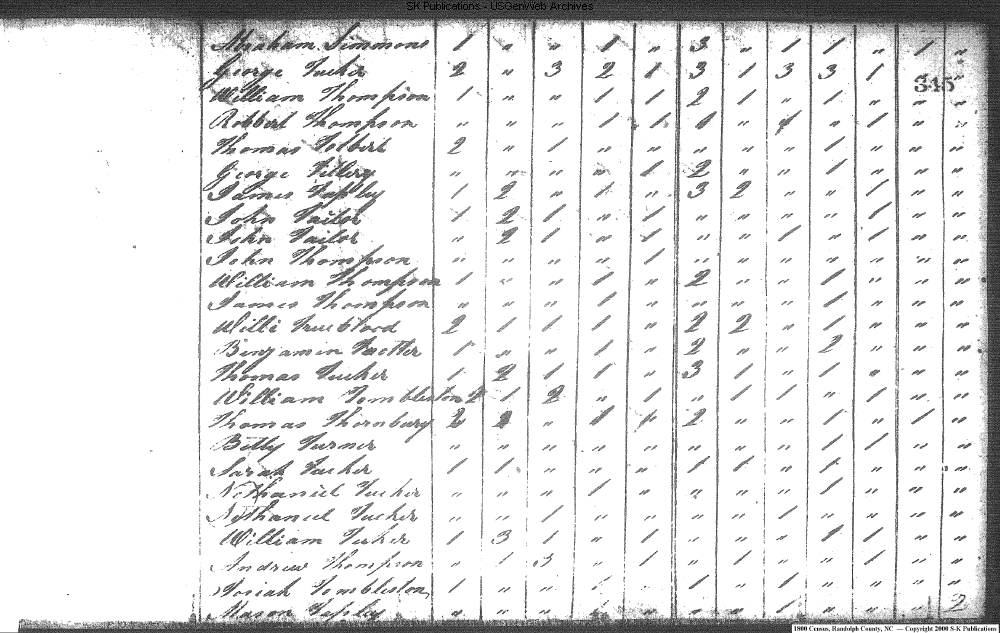 SK Publications - USGenWeb Archives
Abraham Simmons 1 " " 1 " 3 " 1 1 " 1 "
George Tucker 2 " 3 2 1 3 1 3 3 1
345
William Thompson 1 " " 1 1 2 1 " 1 " " "
Robbert Thompson " " " 1 1 1 " 1 " 1 " "
Thomas Tolbert 2 " 1 " " " " " 1 " " "
George Tillery " " " " 1 2 " " 1 " " "
James Tapley 1 2 " 1 " 3 2 " " 1 " "
John Tailor 1 2 1 " 1 " " " " 1 " "
John Tailor " 2 1 " 1 " " 1 " 1 " "
John Thompson " " " " 1 " " " " " " "
William Thompson 1 " " 1 " 2 " " 1 " " "
James Thompson " " " 1 " " " " 1 " " "
Willi Trueblood 2 1 1 1 " 2 2 " 1 " " "
Benjamin 1 " " 1 " 2 " " 2 " " "
Thomas Tucker 1 2 1 1 " 3 1 " 1 " " "
William Tombleston 2 1 2 " 1 " 1 1 " 1 " "
Thomas Thornbury 2 2 " 1 1 2 " " 1 " 1 "
Betty Turner " " " " " " " " 1 1 " "
Sarah Tucker 1 1 " " " 1 1 " 1 " " "
Nathaniel Tucker " " " 1 " " " " 1 " " "
Nathaniel Tucker " " 1 " " " " 1 " " " "
William Tucker 1 3 1 " 1 " " " 1 1 " "
Andrew Thompson " 1 3 " 1 " 1 " " 1 " "
Josiah Tombleston 1 " " 1 " 1 " 1 " " " "
Mason Tapley " " " 1 " " " 1 " " " 2
1800 Census, Randolph County, NC — Copyright 2000 S-K Publications